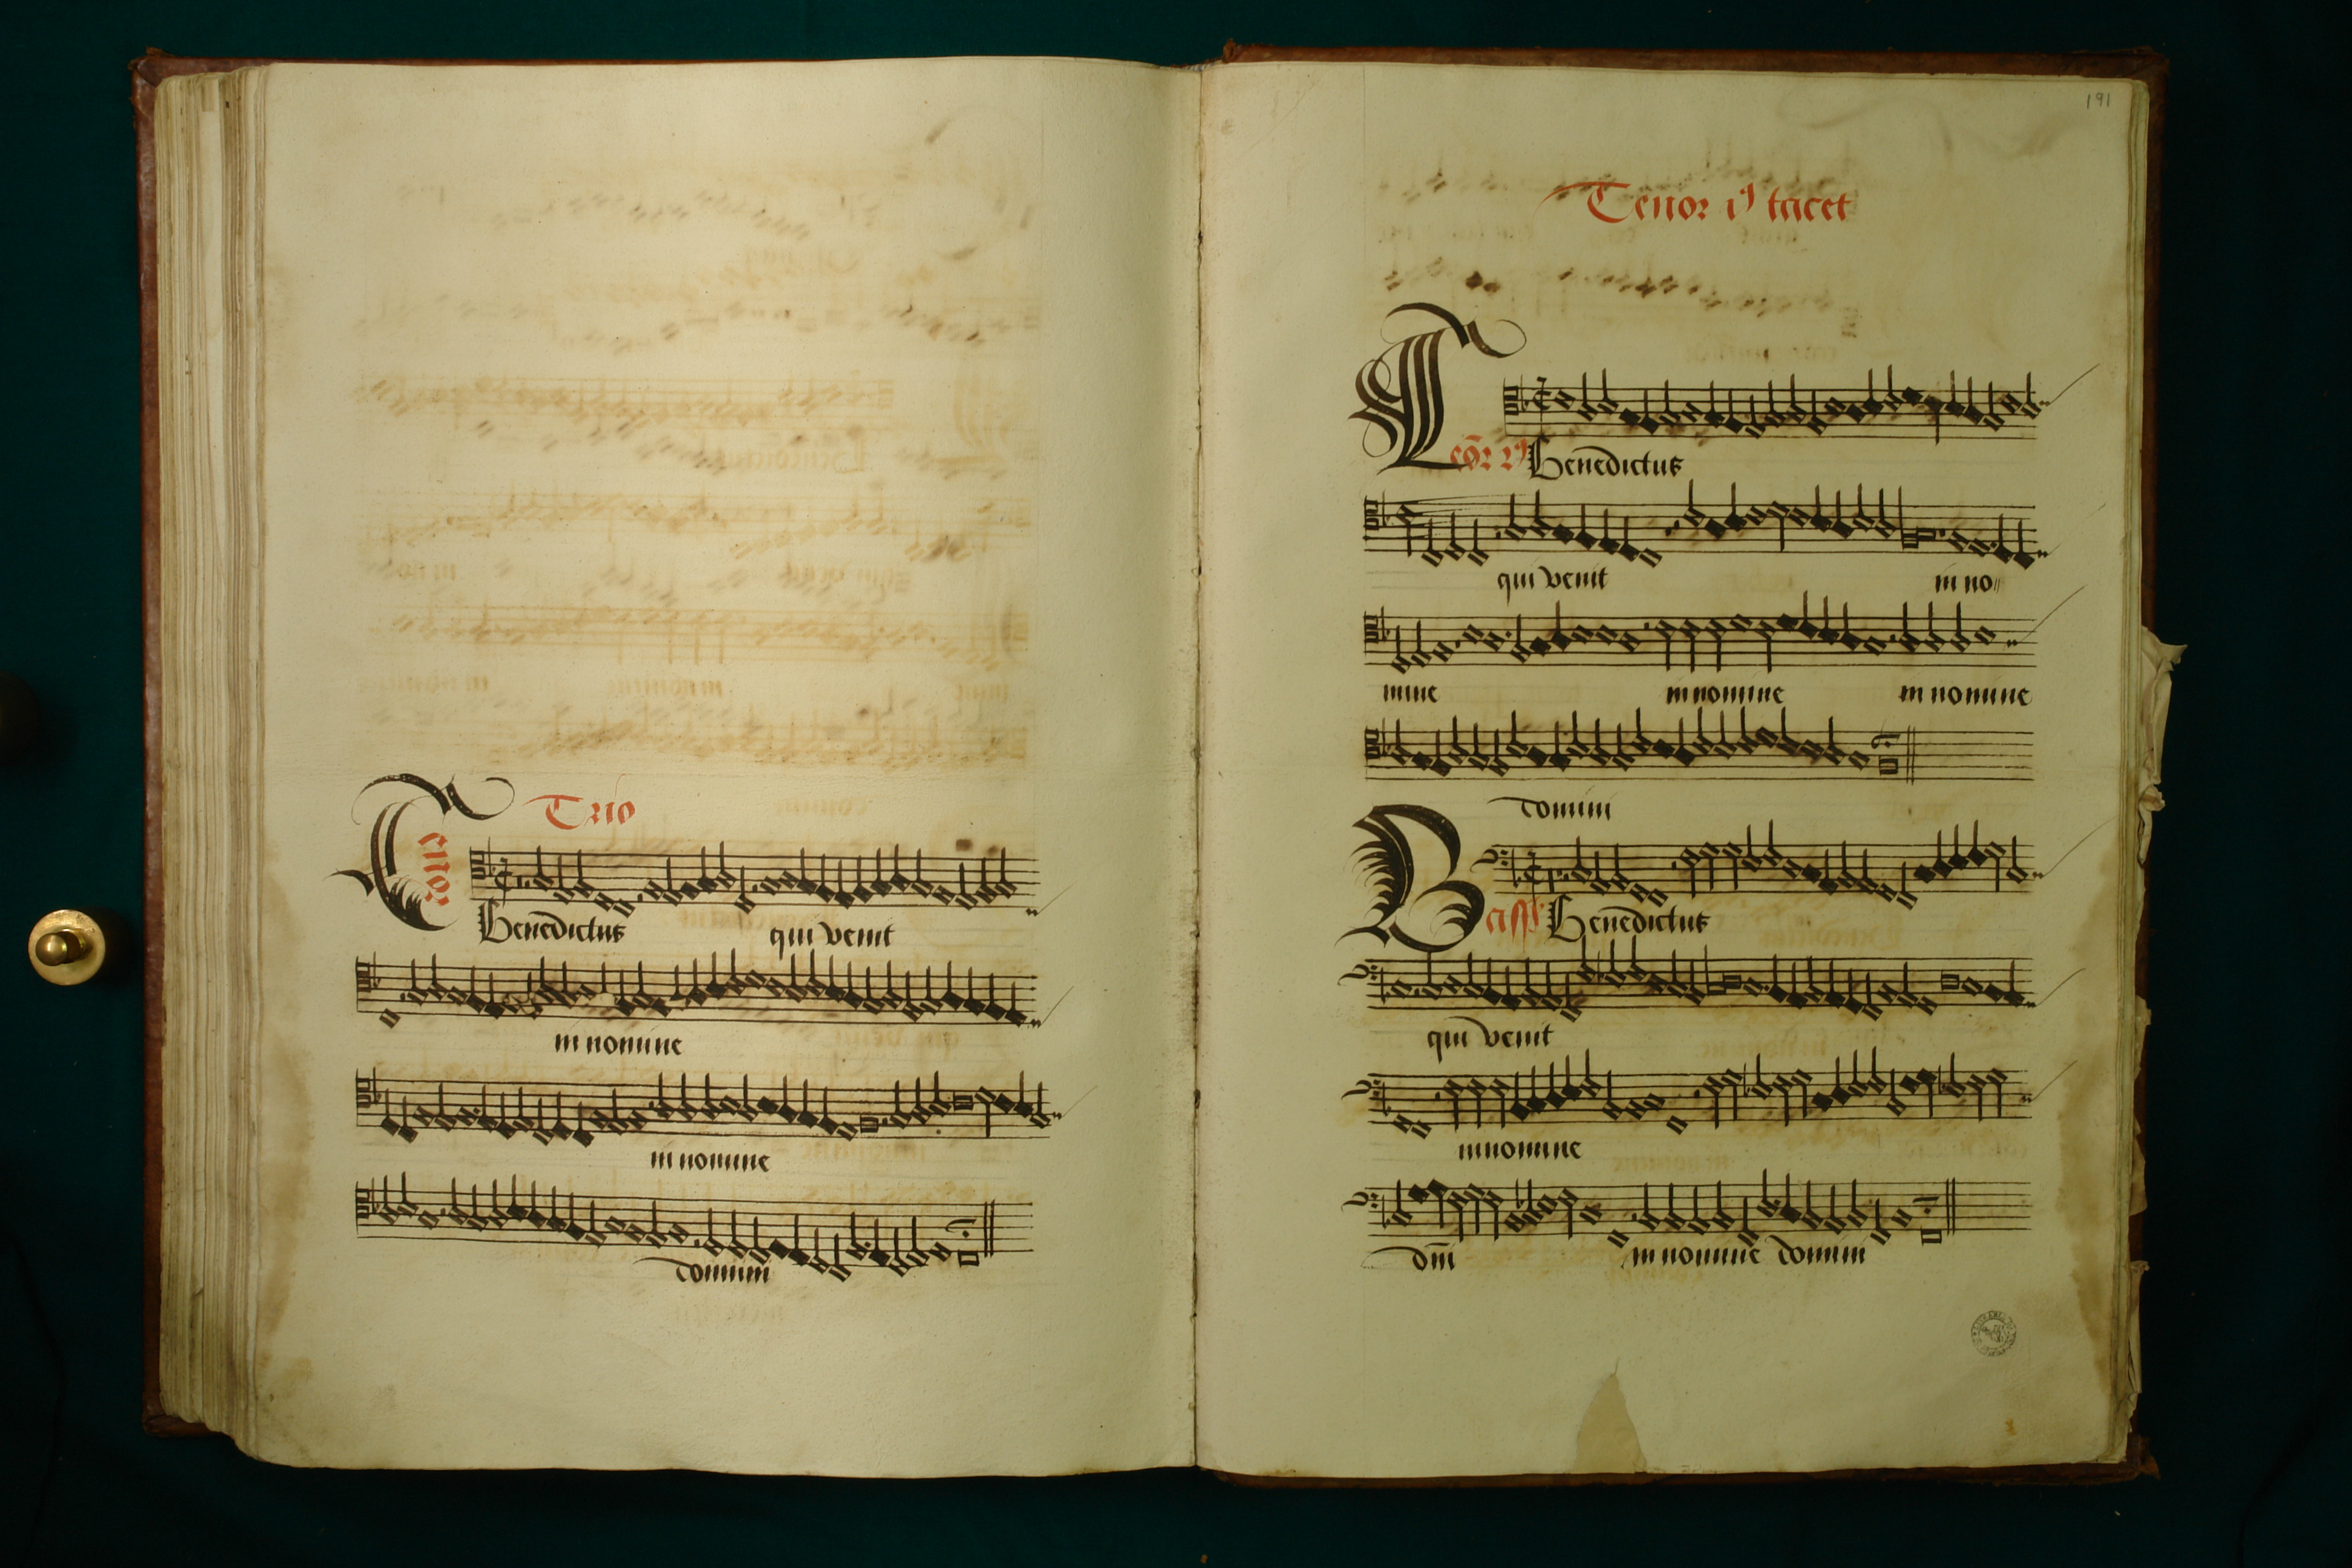 Trio
Tenor
Benedictus qui venit
in nomine
in nomine
domini
191
Tenor 1ꝰ tacet
Benedictus
qui venit in no
mine in nomine in nomine
domini
Benedictus
qui venit
in nomine
dn̄i in nomine domini